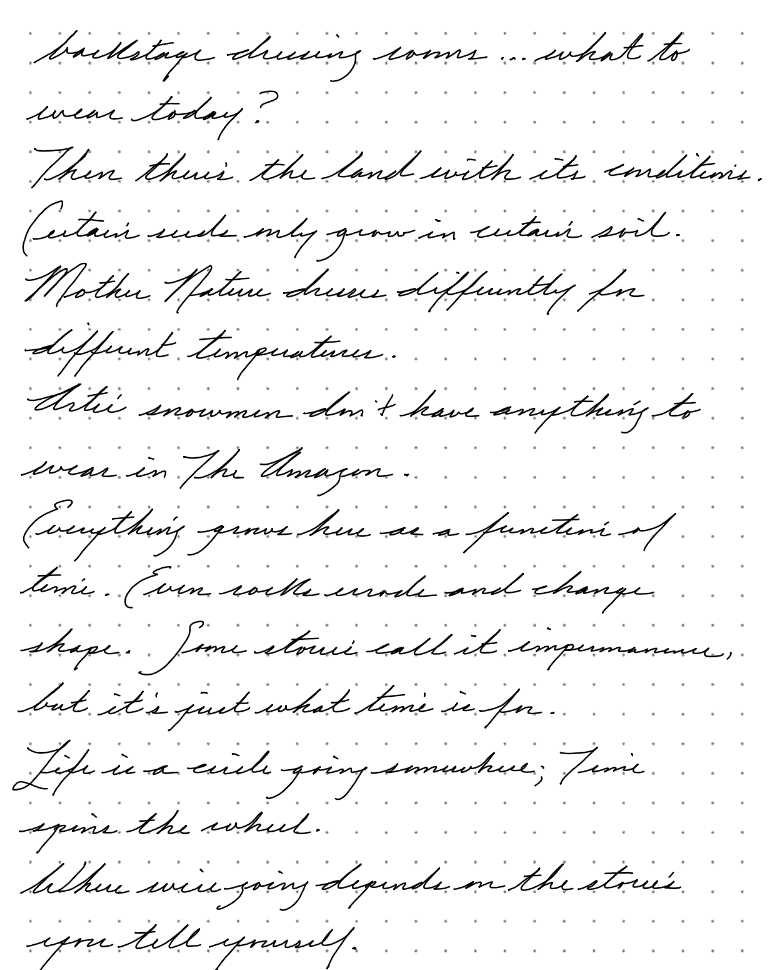 backstage dressing rooms ... what to
wear today?
Then there's the land with its conditions.
Certain seeds only grow in certain soil.
Mother Nature dresses differently for
different temperatures.
Artic snowmen don't have anything to
wear in The Amazon.
Everything grows here as a function of
time. Even rocks erode and change
shape. Some stories call it impermanence,
but it's just what time is for.
Life is a circle going somewhere; Time
spins the wheel.
Where we're going depends on the stories
you tell yourself.